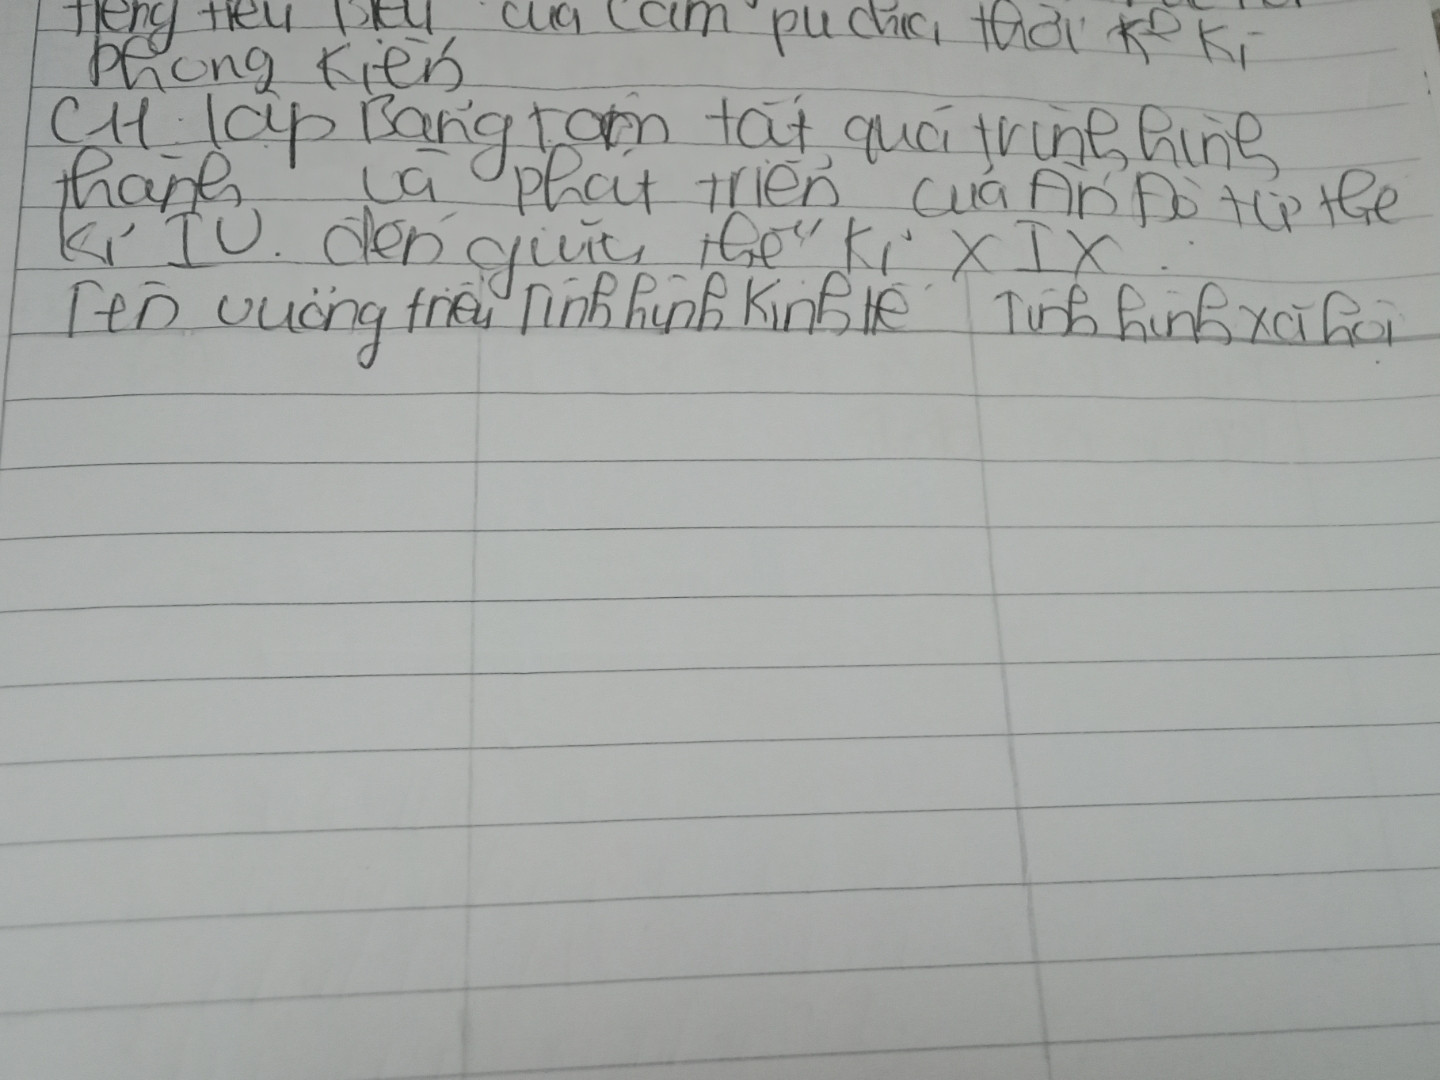 tiếng tiêu biểu của Cam pu chia thời kì
phong kiến
CH. lập Bảng tóm tắt quá trình hình
thành và phát triển của Ấn Độ từ thế
kỉ IV. đến giữa thế kỉ XIX.
Tên vương triều Tình hình Kinh tế Tình hình xã hội